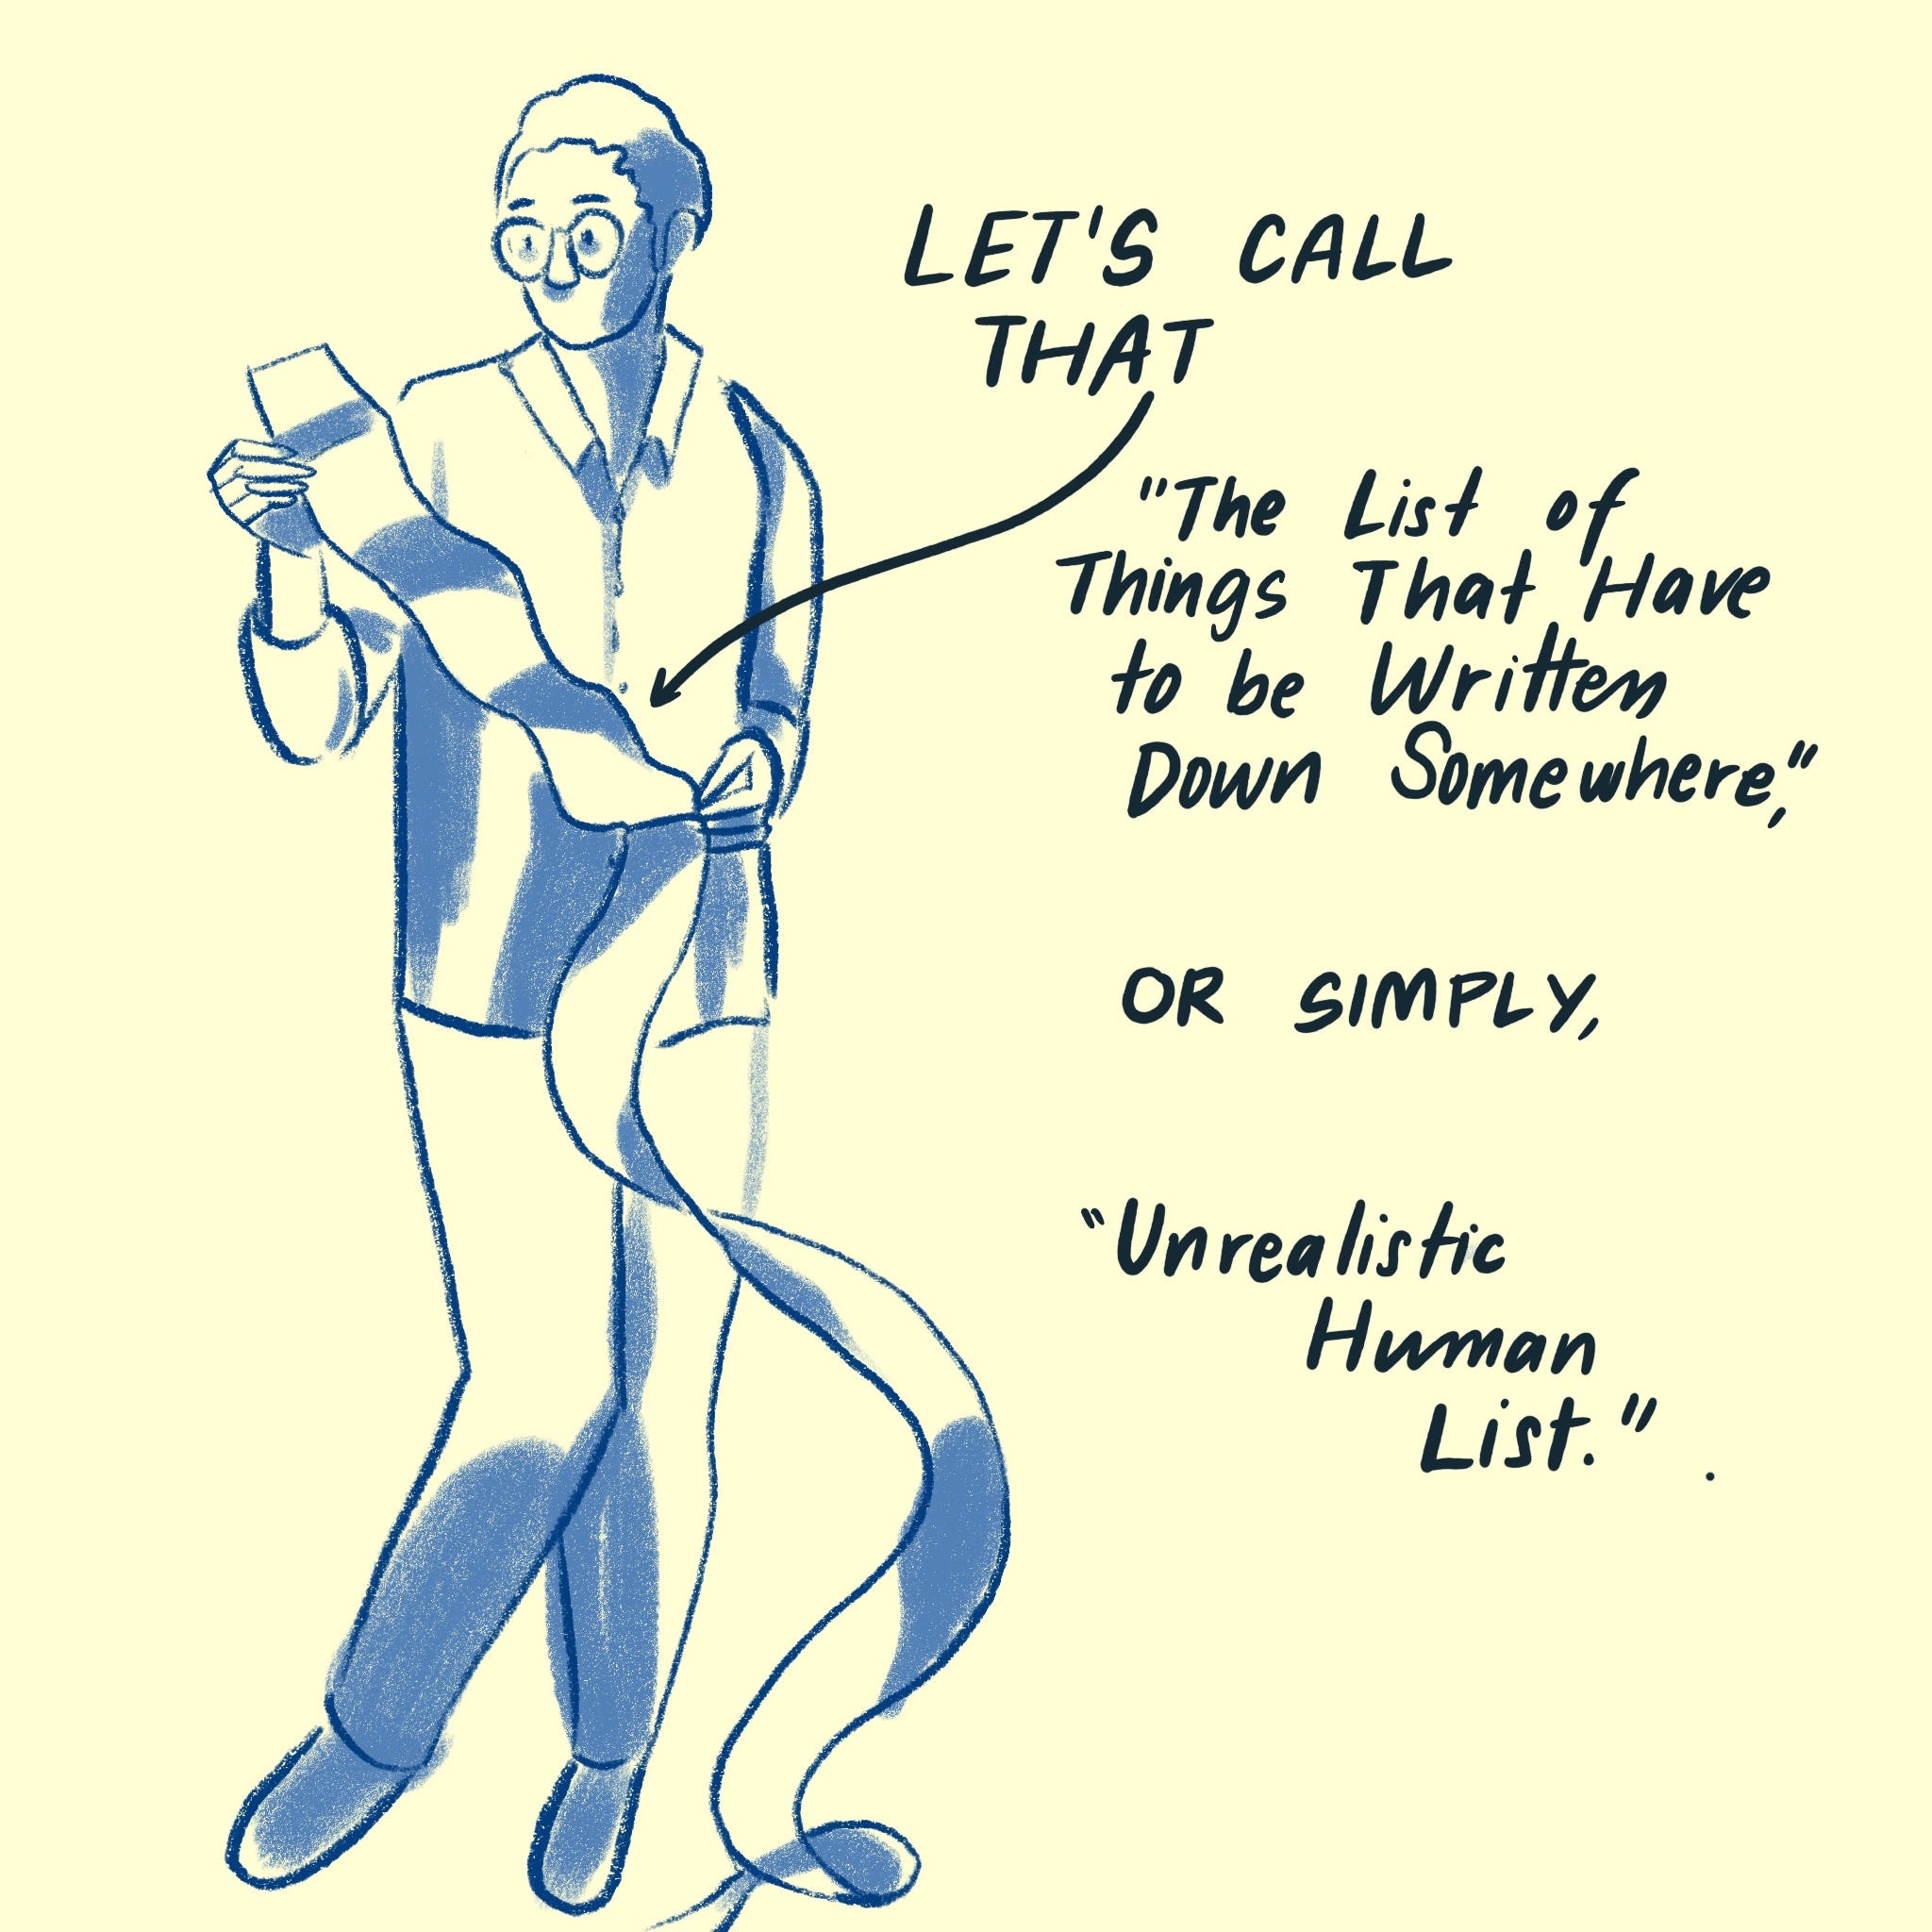 LET'S CALL
THAT
"The List of
Things That Have
to be Written
Down Somewhere,"
OR SIMPLY,
"Unrealistic
Human
List."